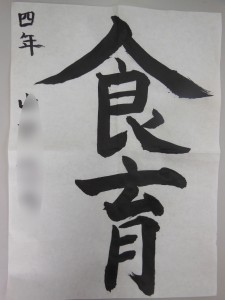 食育
四年